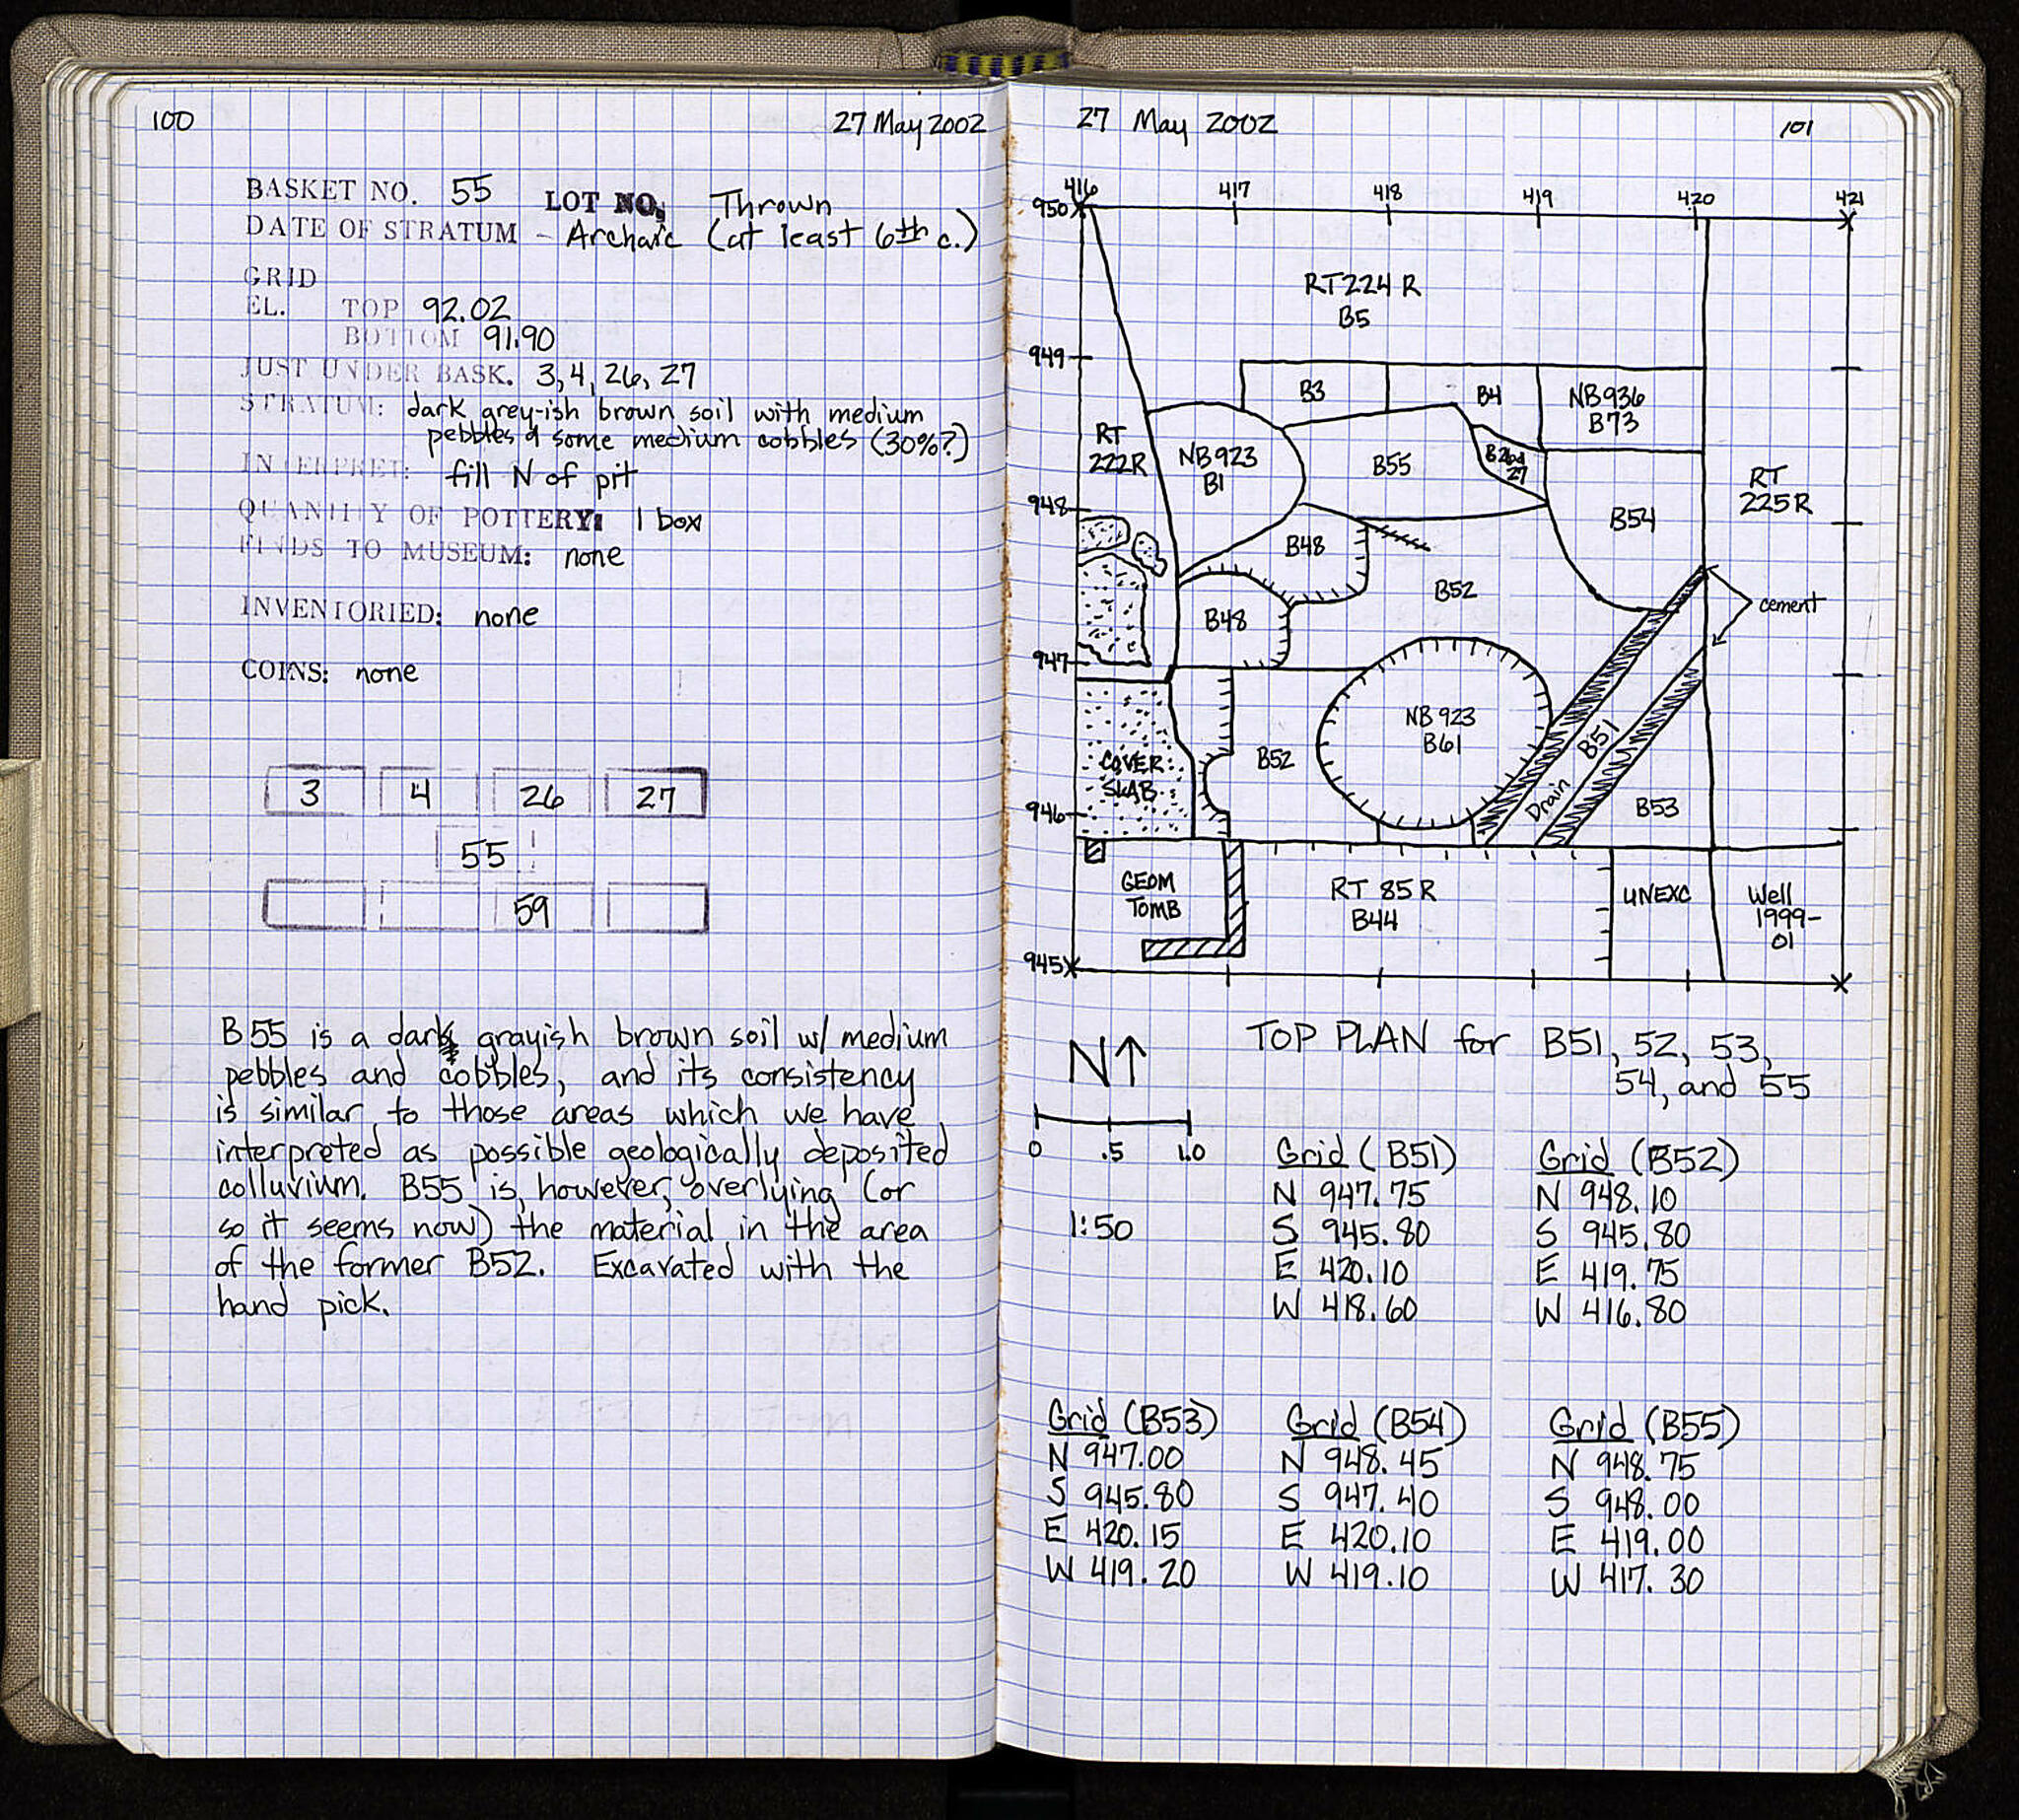 100
27 May 2002
BASKET NO. 55 LOT NO. Thrown
DATE OF STRATUM - Archaic (at least 6th c.)
GRID
EL. TOP 92.02
BOTTOM 91.90
JUST UNDER BASK. 3, 4, 26, 27
STRATUM: dark grey-ish brown soil with medium
pebbles & some medium cobbles (30%?)
INTERPRET: fill N of pit
QUANTITY OF POTTERY: 1 box
FINDS TO MUSEUM: none
INVENTORIED: none
COINS: none
3 4 26 27
55
59
B55 is a dark grayish brown soil w/ medium
pebbles and cobbles, and its consistency
is similar to those areas which we have
interpreted as possible geologically deposited
colluvium. B55 is, however, overlying (or
so it seems now) the material in the area
of the former B52. Excavated with the
hand pick.
27 May 2002
101
416 417 418 419 420 421
950
RT 224 R
B5
949
B3
B4
NB 936
B73
RT
222R
NB 923
B1
B55
B26d
27
RT
225R
948
B54
B48
B52
cement
B48
947
NB 923
B61
B51
COVER
SLAB
B52
Drain
B53
946
GEOM
TOMB
RT 85 R
B44
UNEXC
Well
1999-
01
945
N↑
TOP PLAN for B51, 52, 53,
54, and 55
0 .5 1.0
1:50
Grid (B51)
N 947.75
S 945.80
E 420.10
W 418.60
Grid (B52)
N 948.10
S 945.80
E 419.75
W 416.80
Grid (B53)
N 947.00
S 945.80
E 420.15
W 419.20
Grid (B54)
N 948.45
S 947.40
E 420.10
W 419.10
Grid (B55)
N 948.75
S 948.00
E 419.00
W 417.30